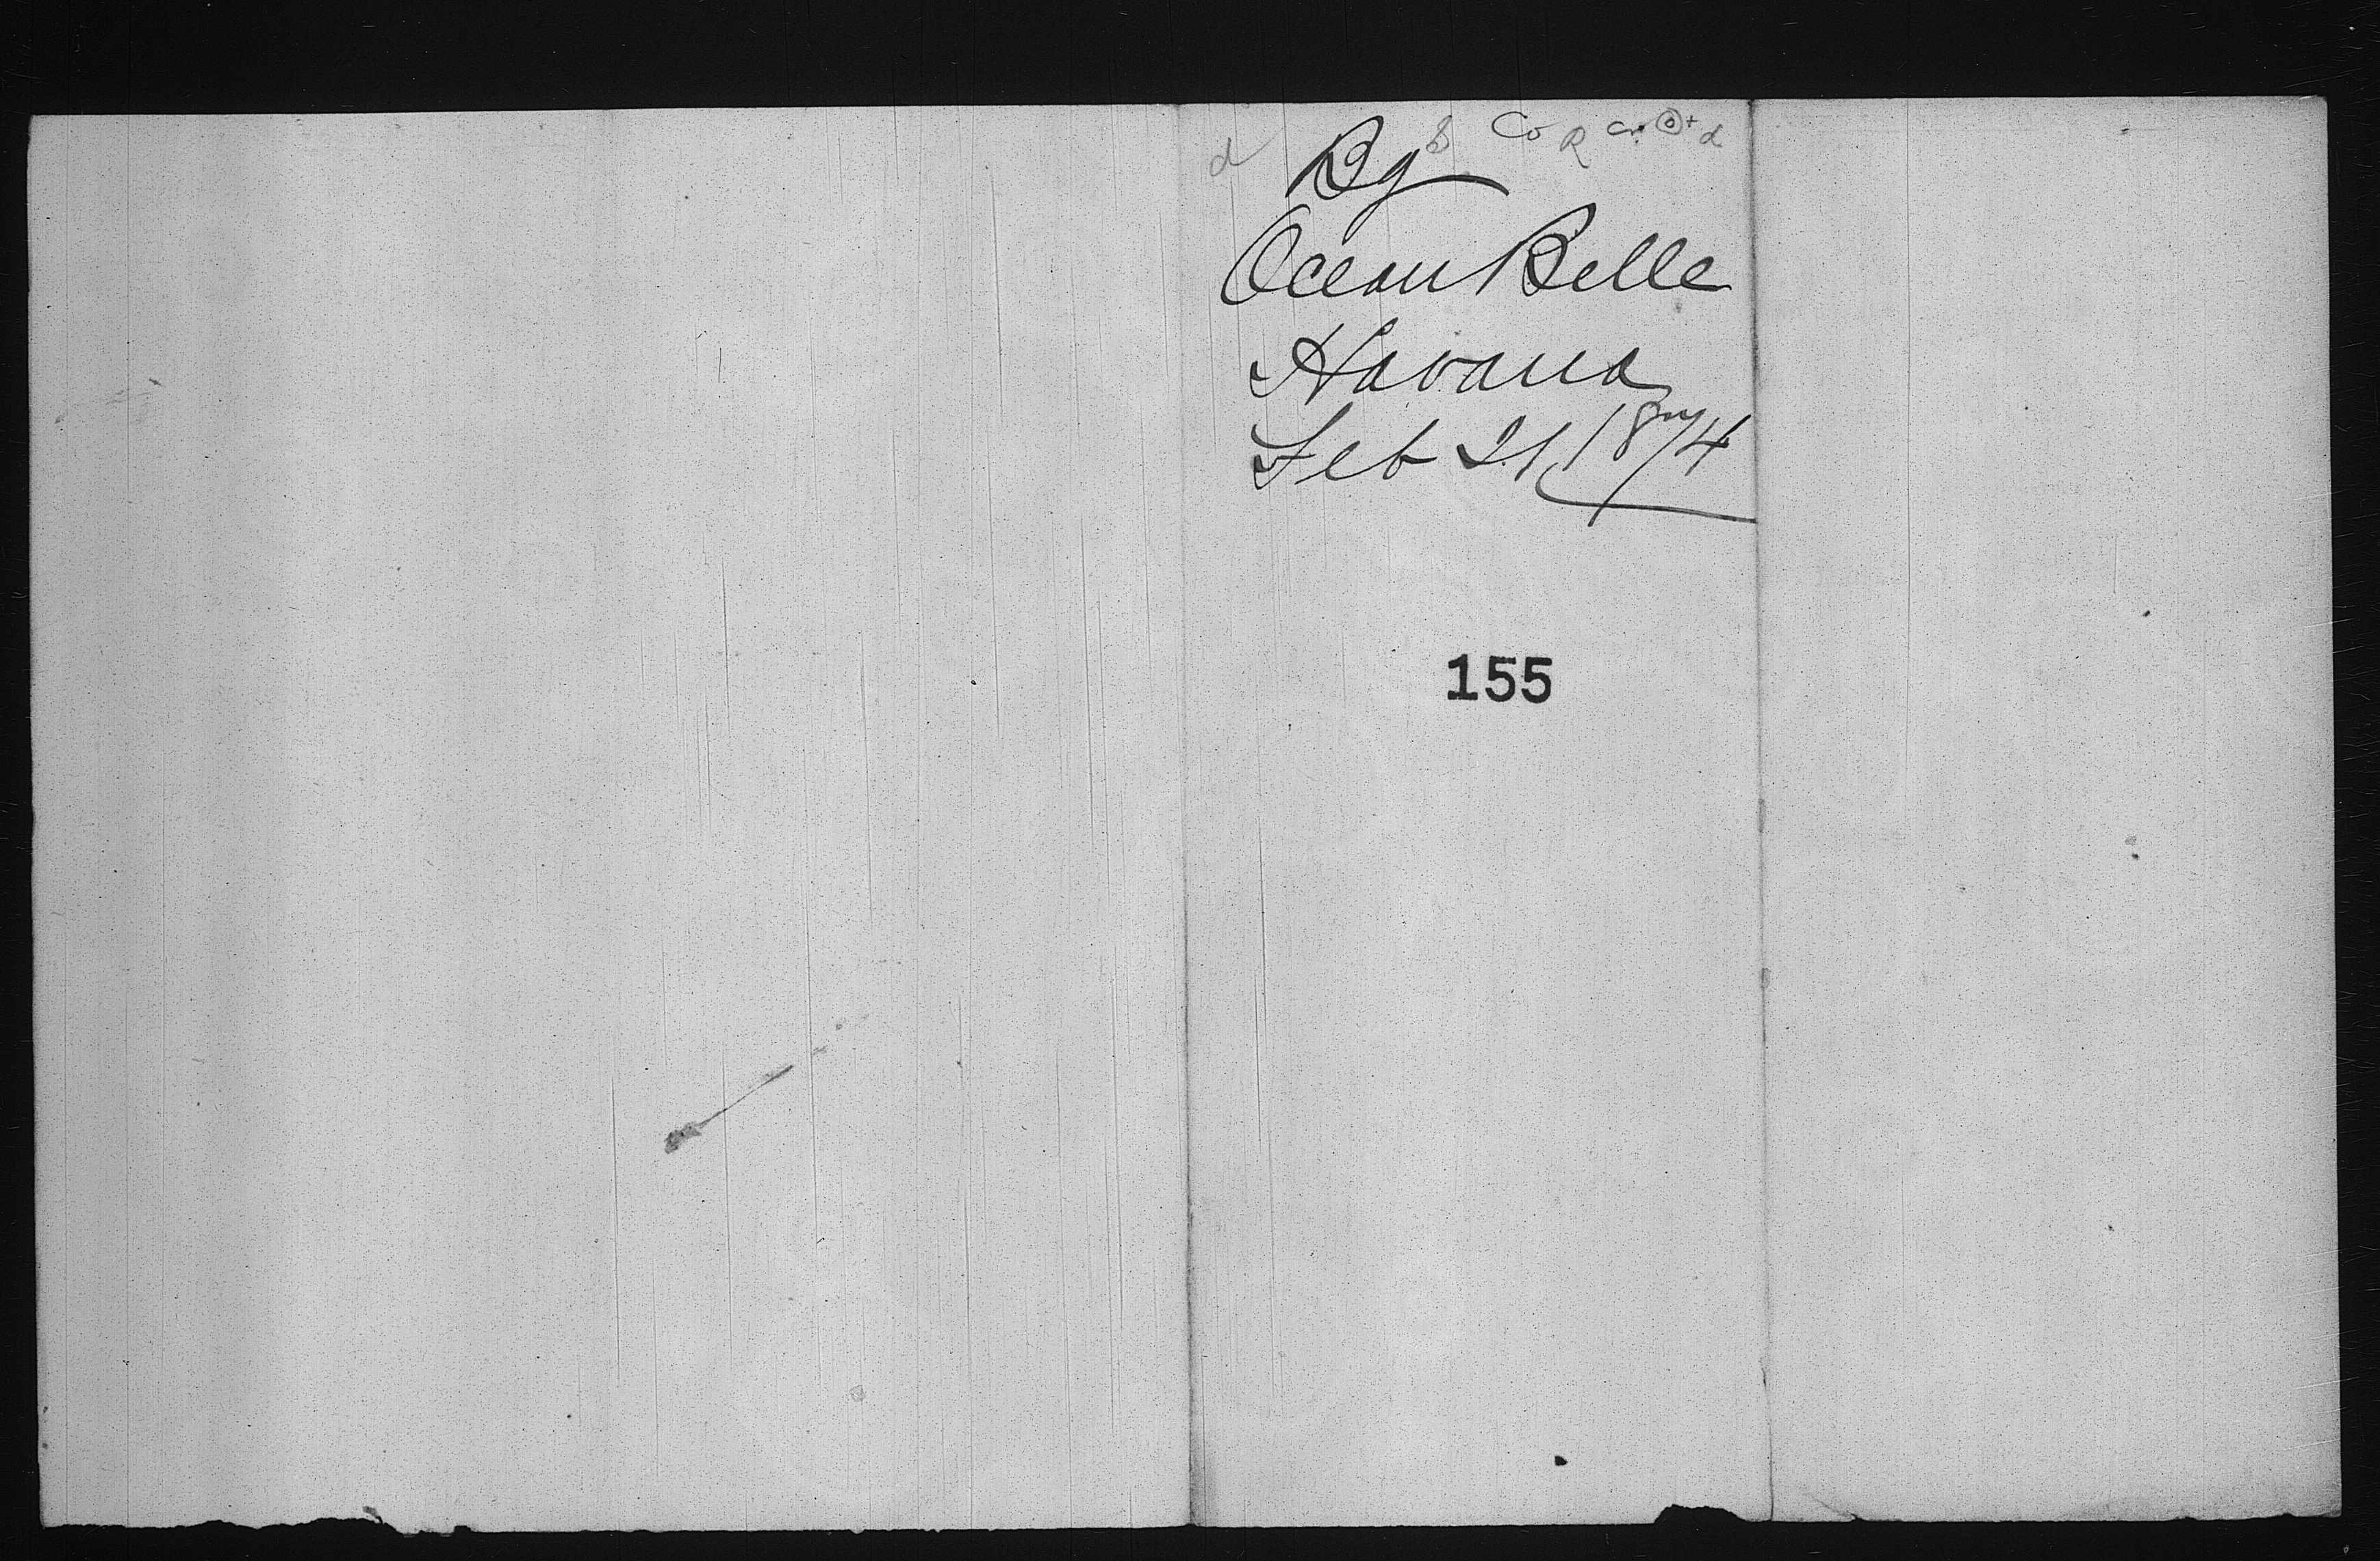 Bg
Ocean Belle
Havana
Feb 21, 1874
155